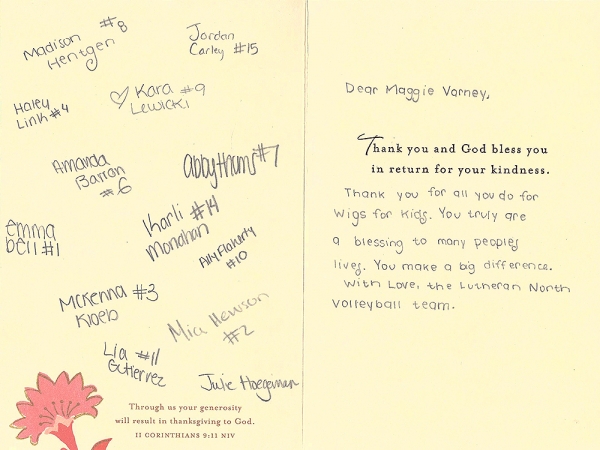 Madison #8
Hentgen
Jordan
Carley #15
Haley
Link #4
Kara #9
Lewicki
Amanda
Barron
#6
abby thams #7
emma
bell #1
Karli #14
Monahan
Ally Flaherty
#10
McKenna #3
Kloeb
Mia Hewson
#2
Lia #11
Gutierrez
Julie Hoegeman
Through us your generosity
will result in thanksgiving to God.
II CORINTHIANS 9:11 NIV
Dear Maggie Varney,
Thank you and God bless you
in return for your kindness.
Thank you for all you do for
Wigs for Kids. You truly are
a blessing to many peoples
lives. You make a big difference.
With Love, the Lutheran North
Volleyball team.